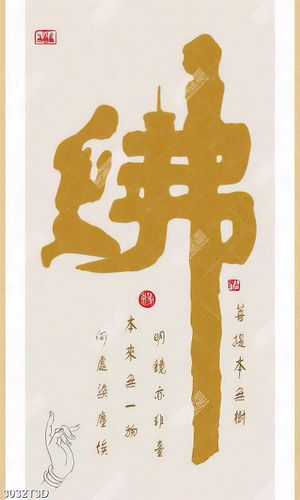 佛
菩提本無樹
明鏡亦非臺
本來無一物
何處染塵埃
3032T3D